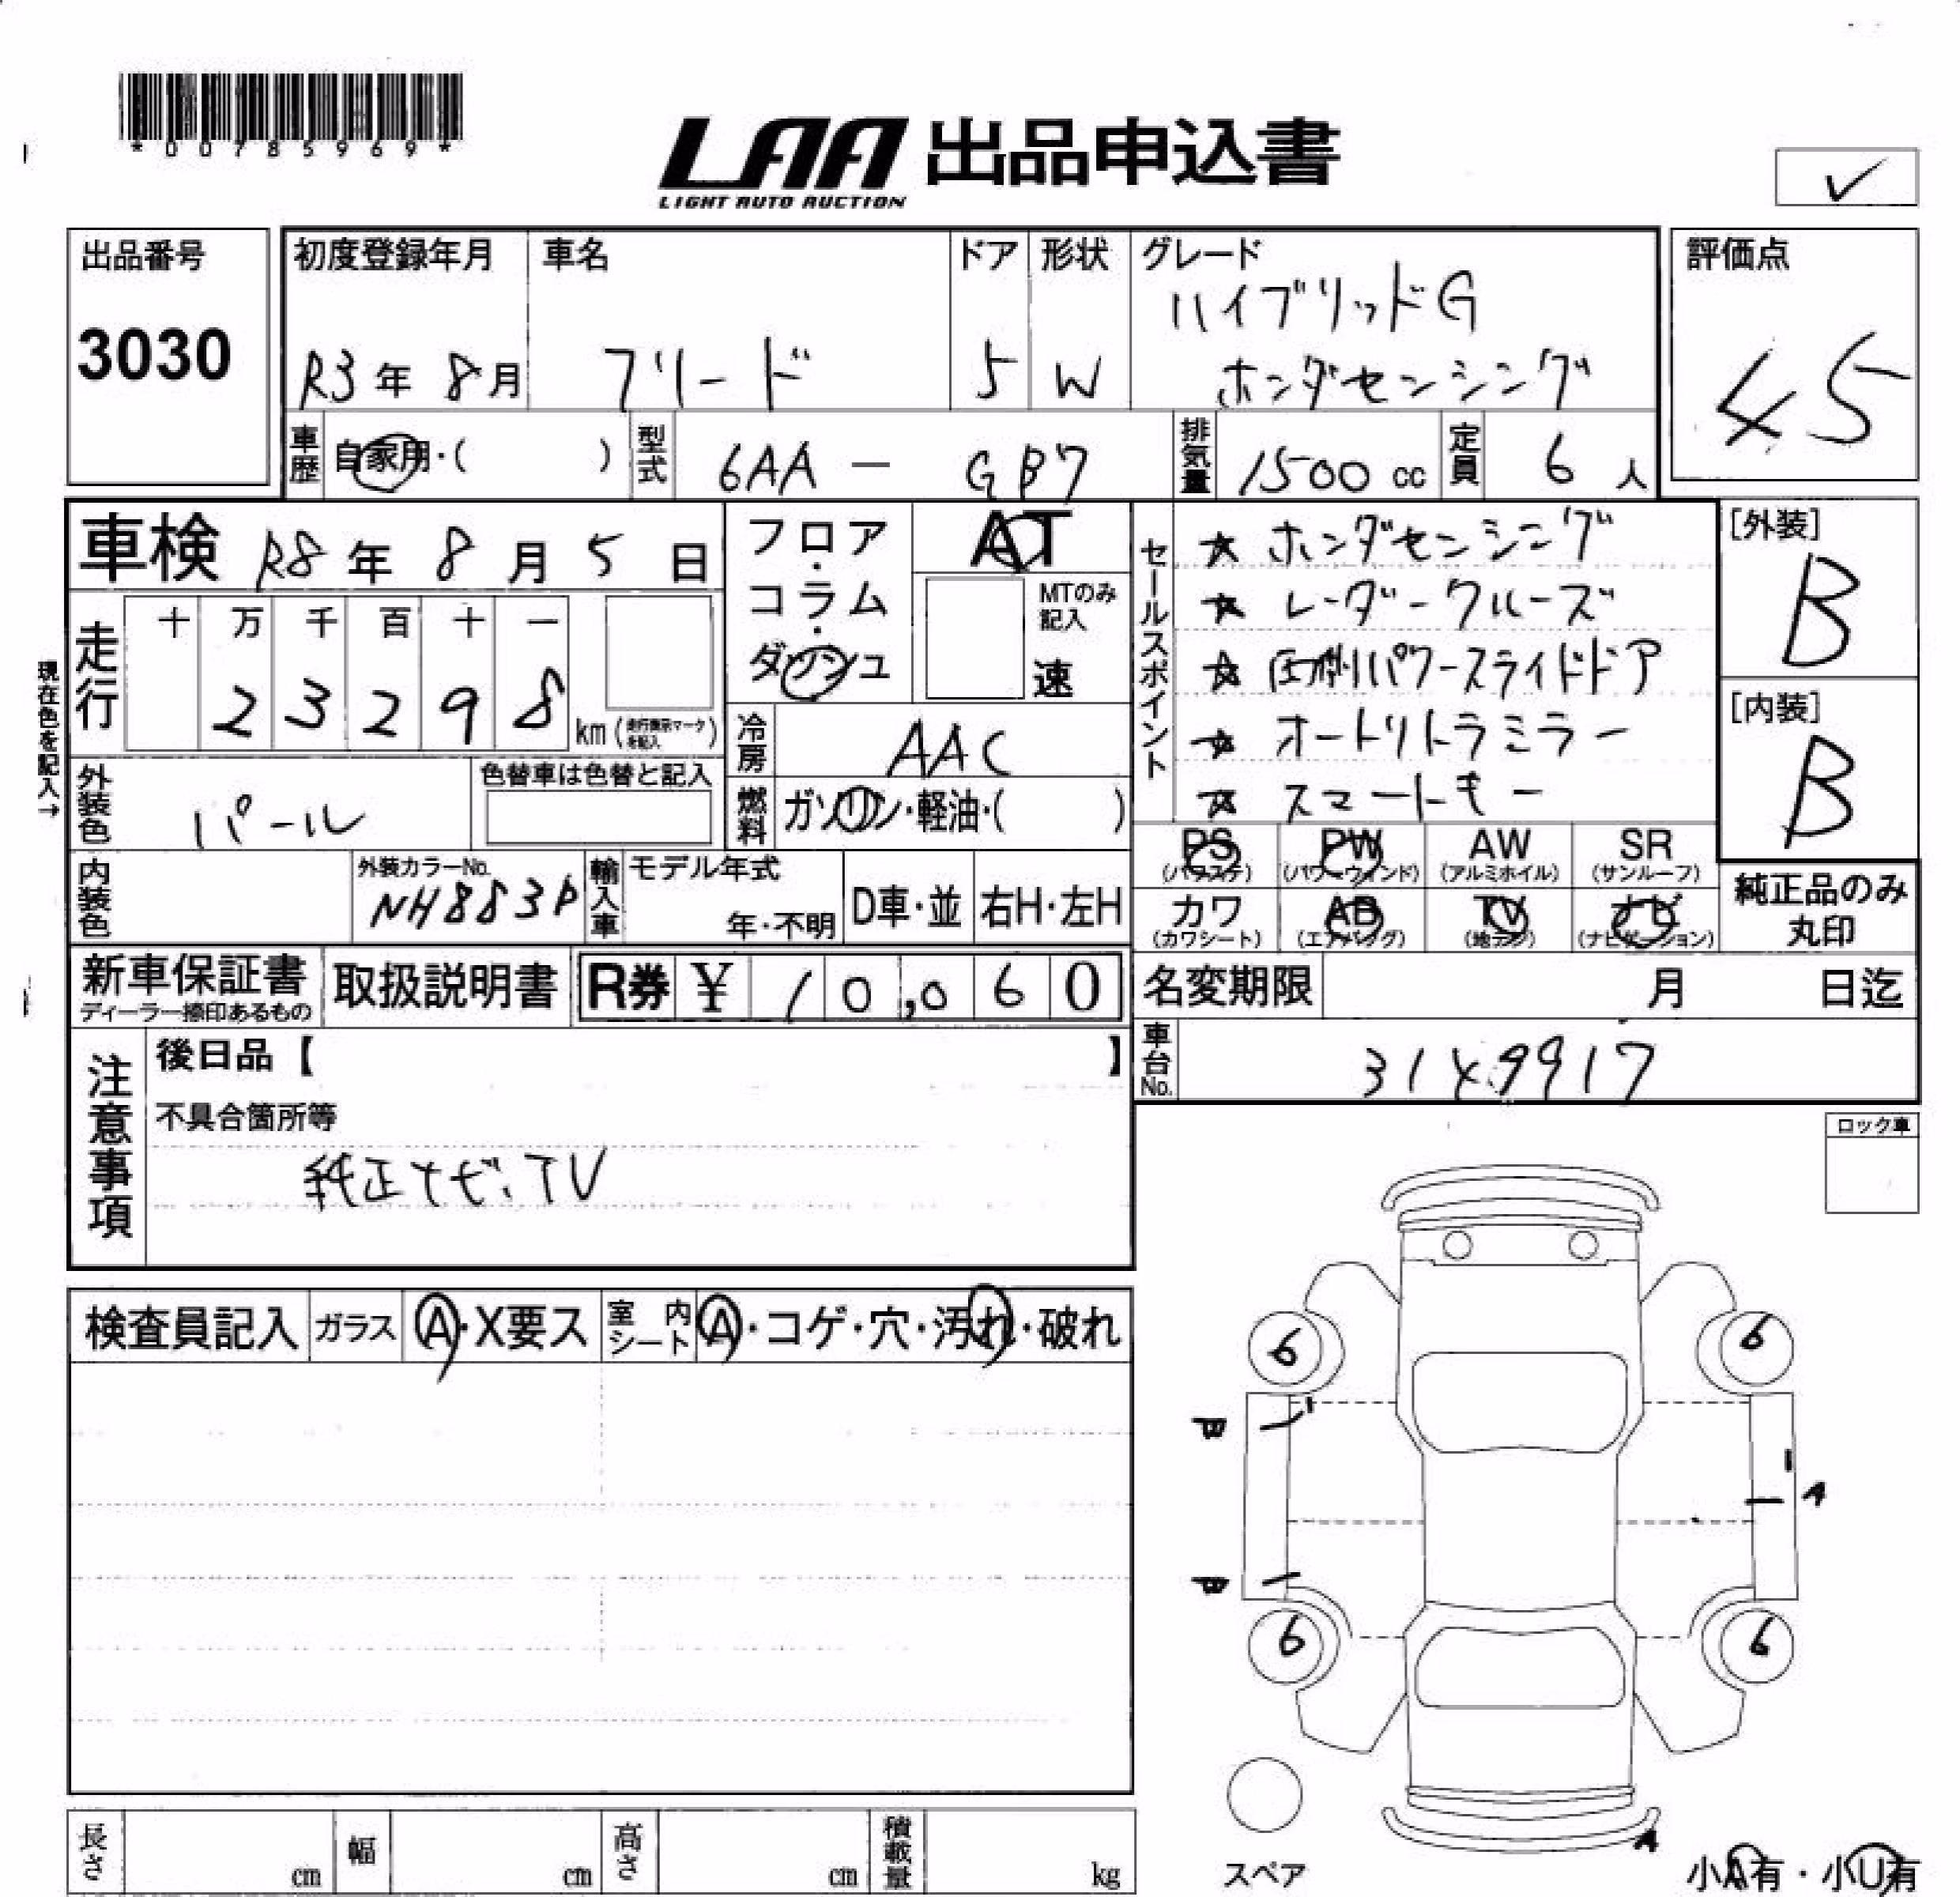 *00785969*
LAA 出品申込書
LIGHT AUTO AUCTION
✓
出品番号
3030
初度登録年月
R3年 8月
車名
フリード
ドア
5
形状
W
グレード
ハイブリッドG
ホンダセンシング
評価点
4.5
車歴
自家用・( )
型式
6AA - GB7
排気量
1500 cc
定員
6 人
車検 R8 年 8 月 5 日
フロア・コラム・ダッシュ
AT
MTのみ記入
速
現在色を記入→
走行
十 万 千 百 十 一
2 3 2 9 8
km (走行表示マークを記入)
冷房
AAC
外装色
パール
色替車は色替と記入
燃料
ガソリン・軽油・( )
内装色
外装カラーNo.
NH883P
輸入車
モデル年式
年・不明
D車・並
右H・左H
セールスポイント
☆ ホンダセンシング
☆ レーダークルーズ
☆ 両側パワースライドドア
☆ オートリトラミラー
☆ スマートキー
[外装]
B
[内装]
B
PS
(パワステ)
PW
(パワーウィンド)
AW
(アルミホイル)
SR
(サンルーフ)
カワ
(カワシート)
AB
(エアバッグ)
TV
(地デジ)
ナビ
(ナビゲーション)
純正品のみ
丸印
新車保証書
ディーラー捺印あるもの
取扱説明書
R券 ¥ 10,060
名変期限 月 日迄
車台No.
注意事項
後日品【 】
不具合箇所等
純正ナビ、TV
ロック車
検査員記入
ガラス
A・X要ス
室内シート
A・コゲ・穴・汚れ・破れ
6 6
B
A
B
6 6
A
スペア
小A有・小U有
長さ cm
幅 cm
高さ cm
積載量 kg